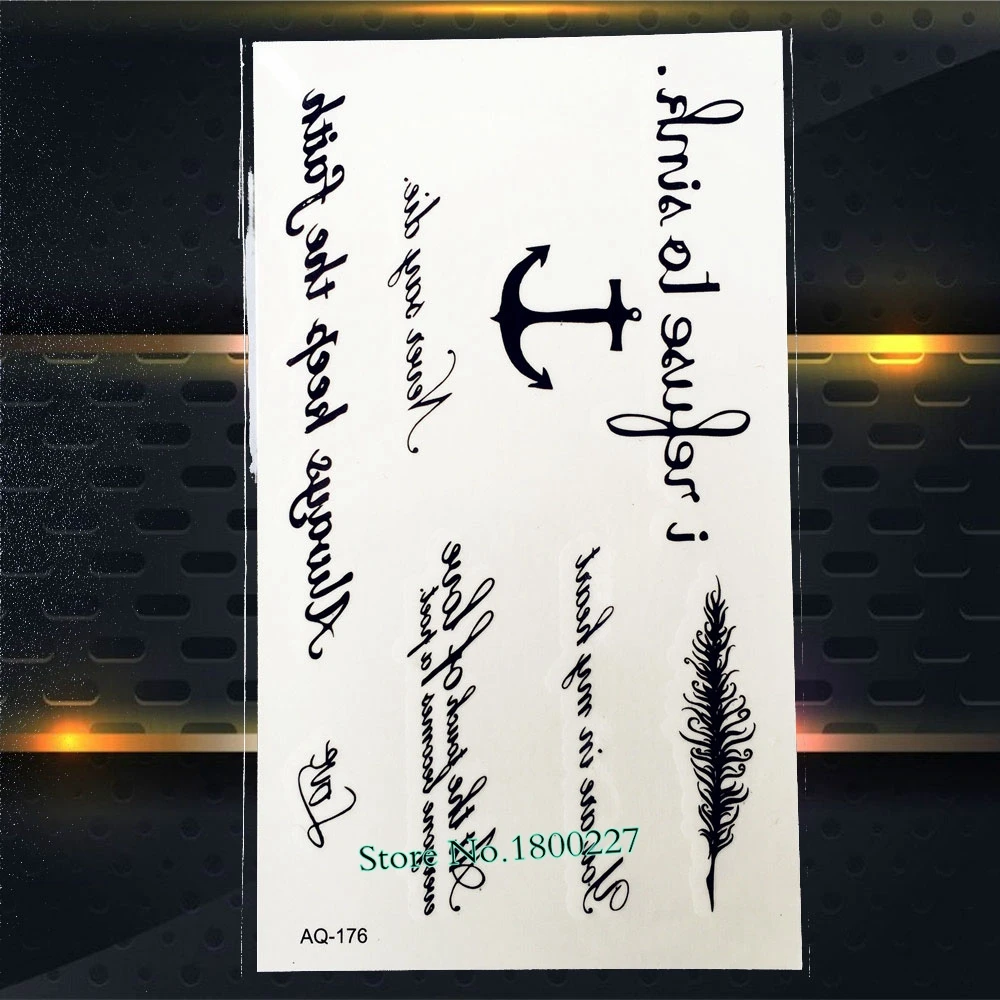 i refuse to sink.
Never say die.
Always keep the Faith
You are in my heart
At the touch of love
everyone becomes a poet.
Love
Store No.1800227
AQ-176